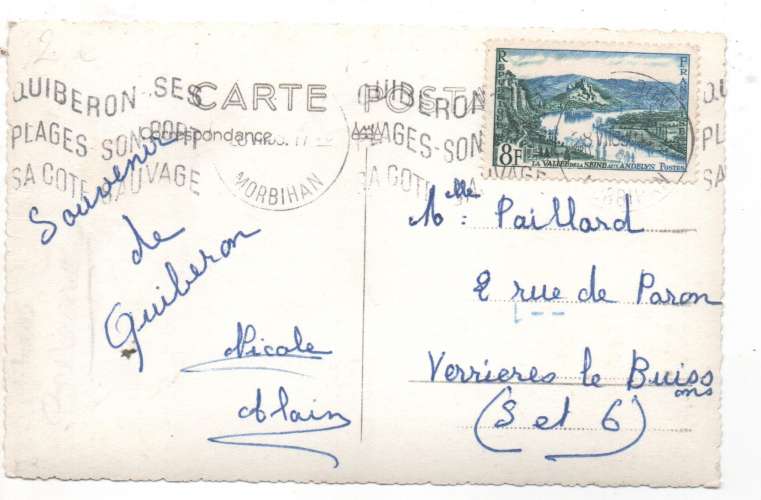 CARTE POSTALE
Correspondance
QUIBERON SES
PLAGES SON PORT
SA COTE SAUVAGE
MORBIHAN
QUIBERON
PLAGES-SON
SA COTE
8F
LA VALLÉE DE LA SEINE AUX ANDELYS POSTES
Souvenir
de
Quiberon
Nicole
Alain
Mlle: Paillard
2 rue de Paron
Verrieres le Buiss
ons
(S et 6)